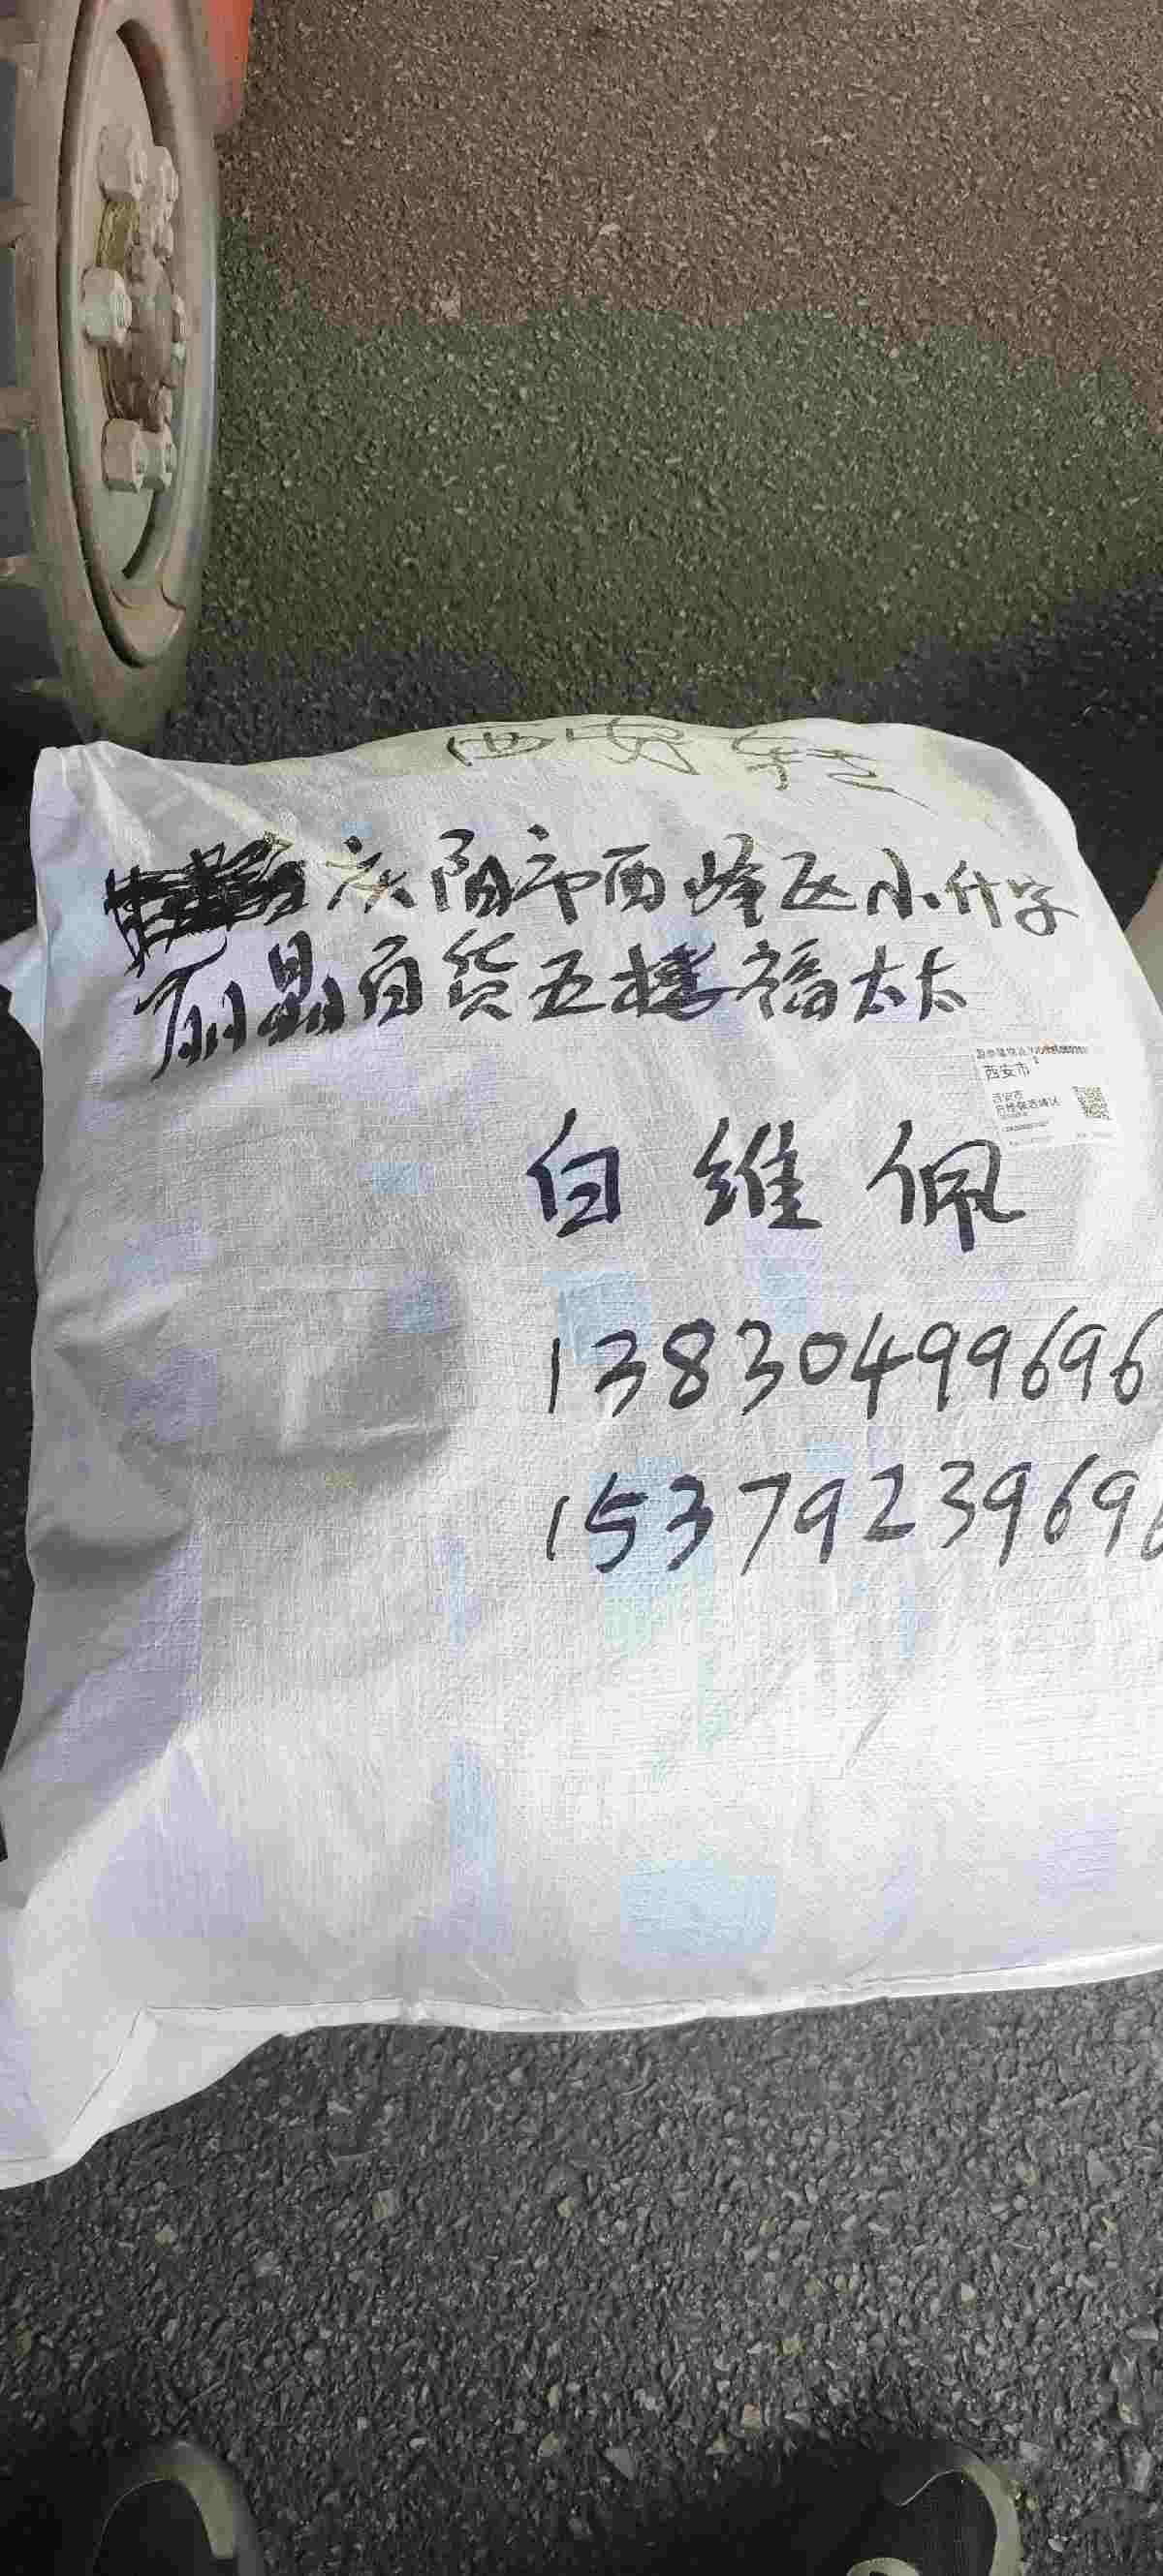 西安转
庆阳市西峰区小什字
丽晶百货五楼福太太
西安市
西安市
白维佩
13830499696
1537923969